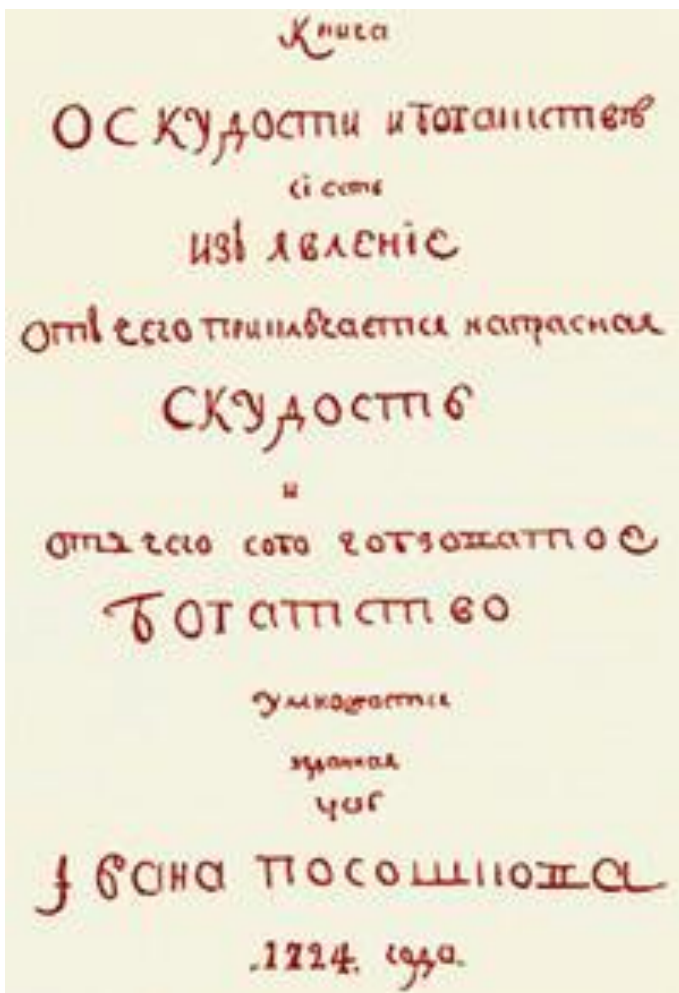 Книга
О СКУДОСТИ и БОГАТСТВѢ
сі есть
изъявленіе
отъ чего приключается напрасная
СКУДОСТЬ
и
отъ чего
БОГАТСТВО
умножается
Івана ПОСОШКОВА
.1724. года.